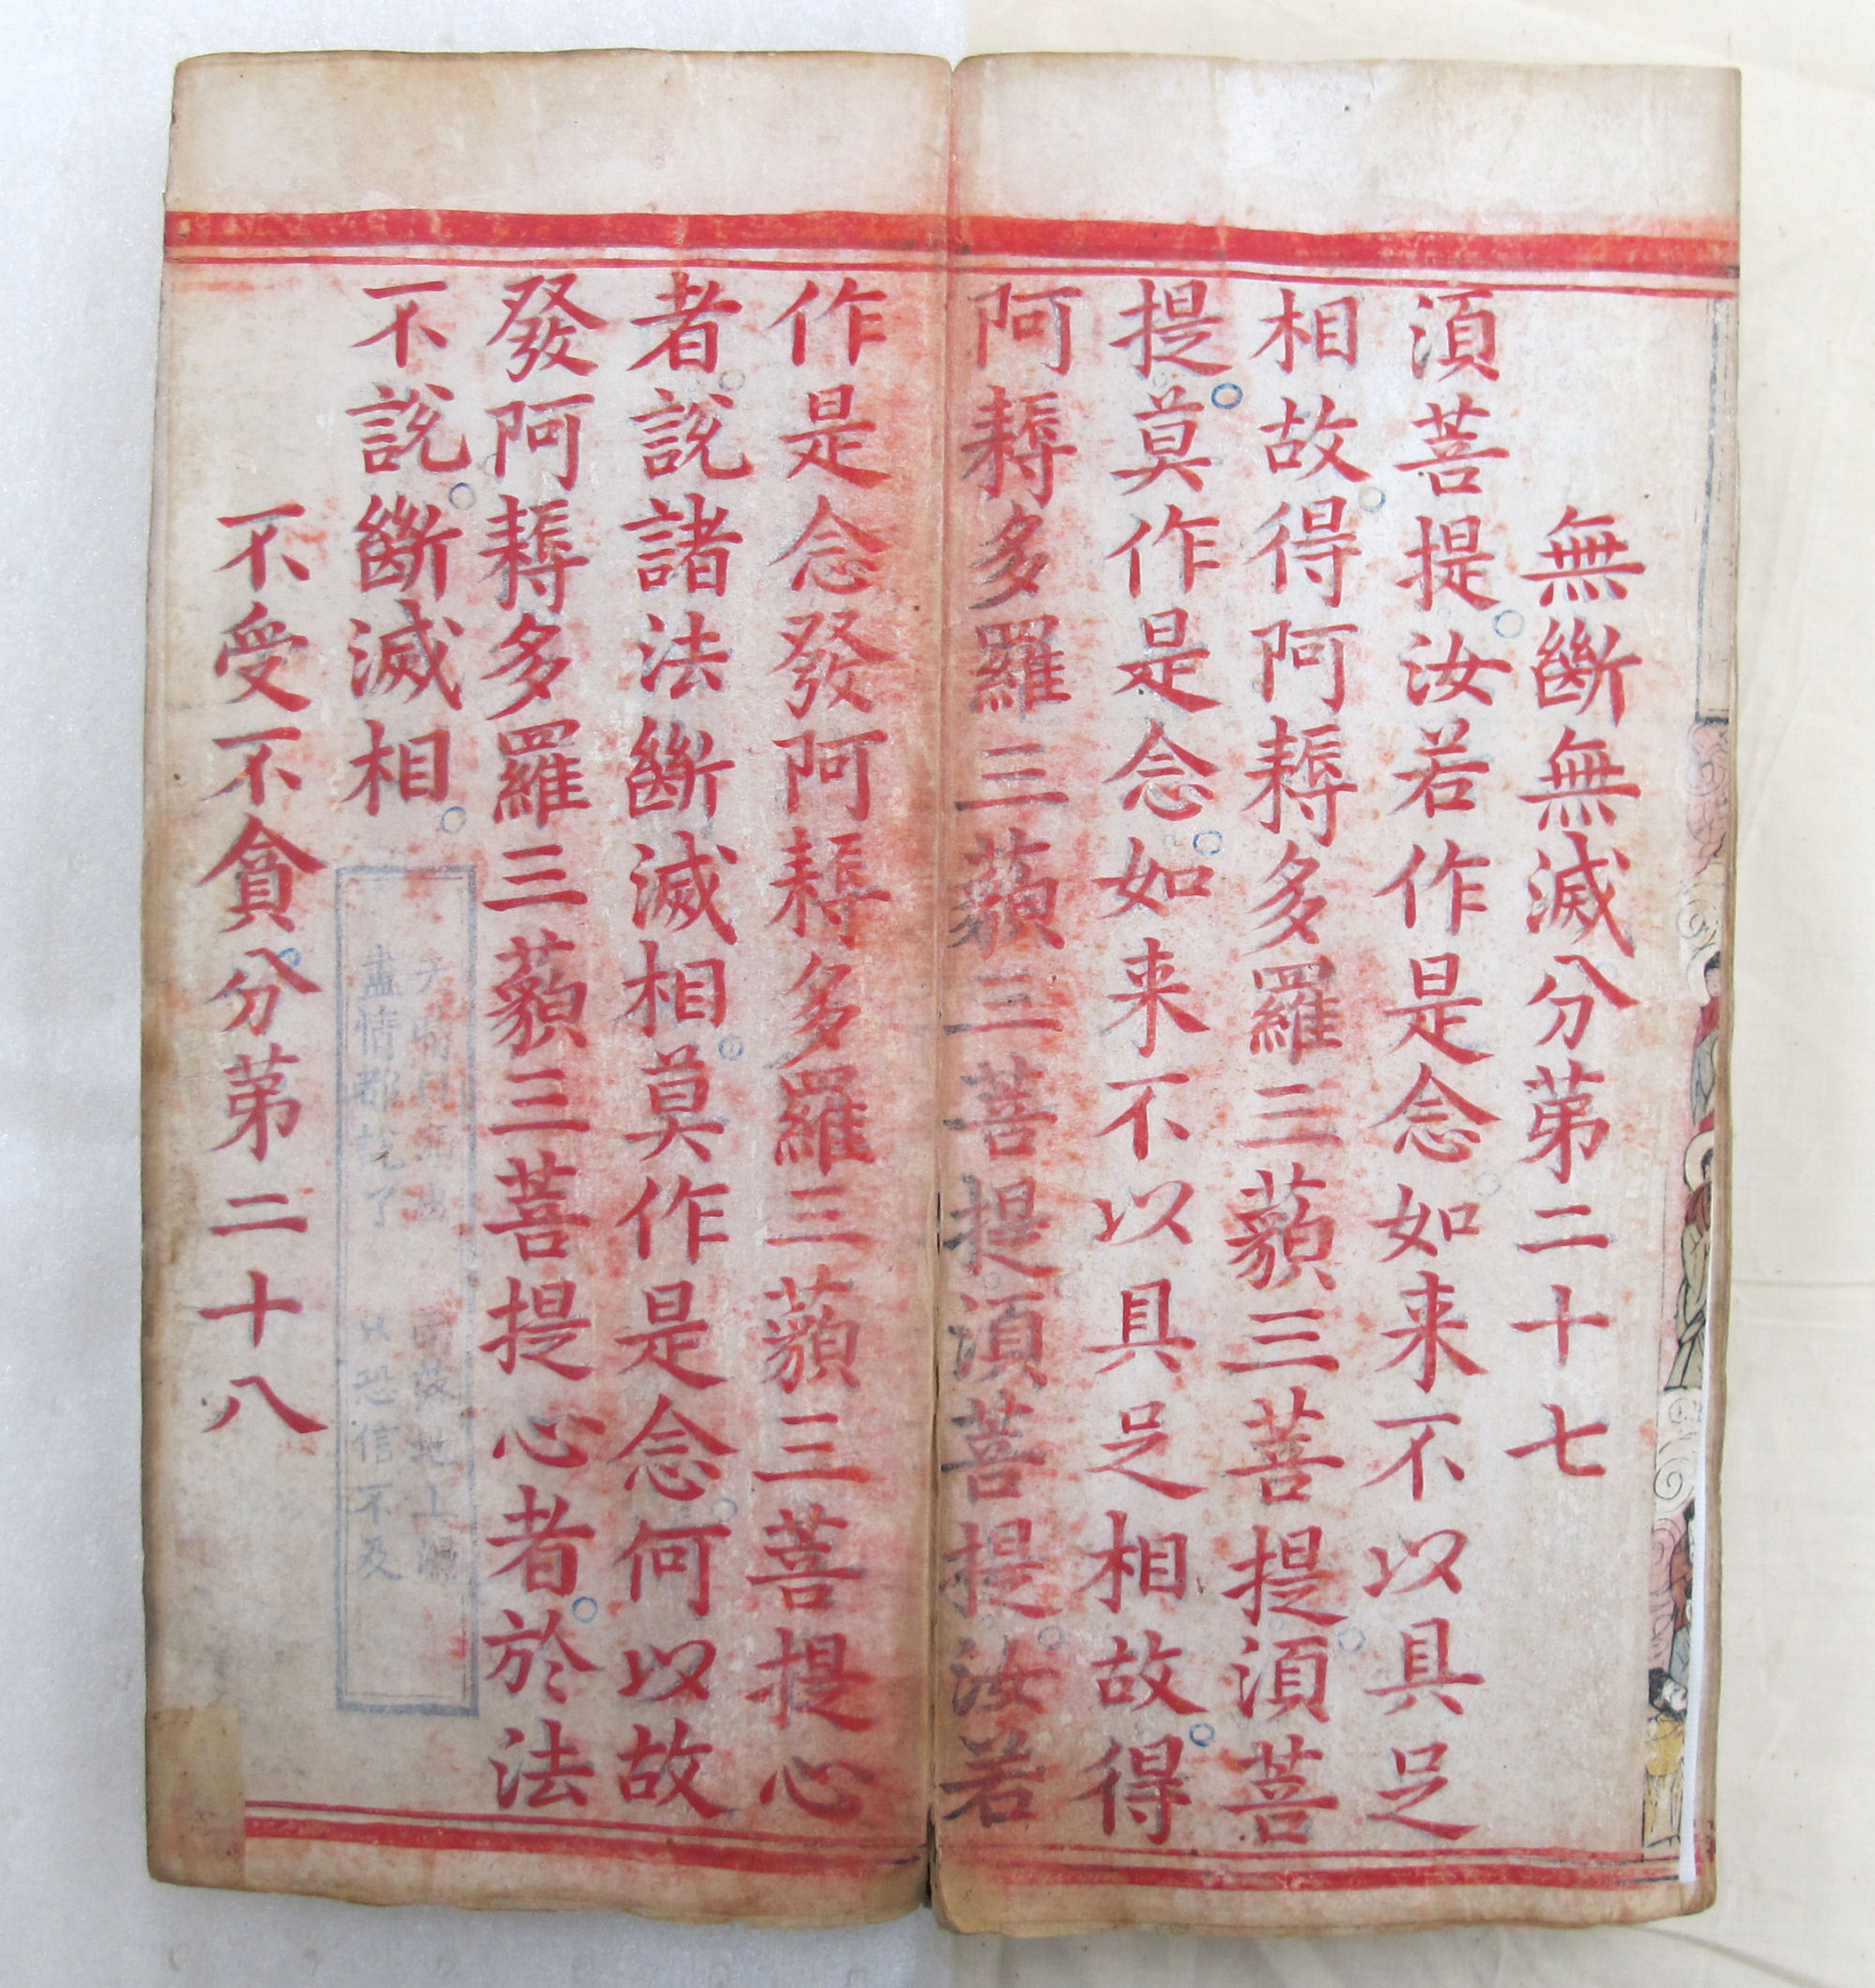 無斷無滅分苐二十七
湏菩提。汝若作是念。如来不以具足
相故。得阿耨多羅三藐三菩提。湏菩
提。莫作是念。如来不以具足相故。得
阿耨多羅三藐三菩提湏菩提。汝若
作是念發阿耨多羅三藐三菩提心
者。說諸法斷滅相。莫作是念。何以故
發阿耨多羅三藐三菩提心者。於法
不說。斷滅相。
天晴日頭出 雨落地上濕
盡情都說了 只恐信不及
不受不貪。分苐二十八